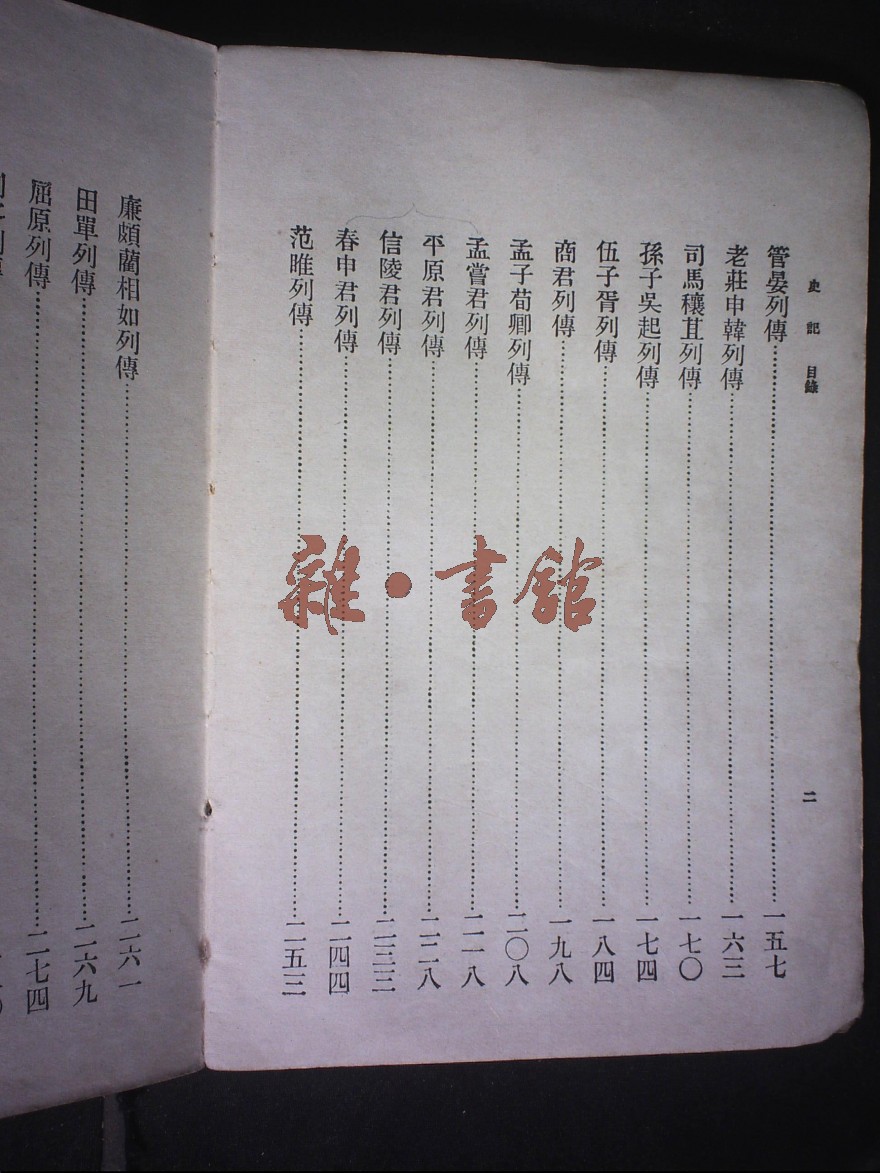 史記 目錄
二
管晏列傳……一五七
老莊申韓列傳……一六三
司馬穰苴列傳……一七〇
孫子吳起列傳……一七四
伍子胥列傳……一八四
商君列傳……一九八
孟子荀卿列傳……二〇八
孟嘗君列傳……二一八
平原君列傳……二二八
信陵君列傳……二三三
春申君列傳……二四四
范睢列傳……二五三
廉頗藺相如列傳……二六一
田單列傳……二六九
屈原列傳……二七四
雜·書館